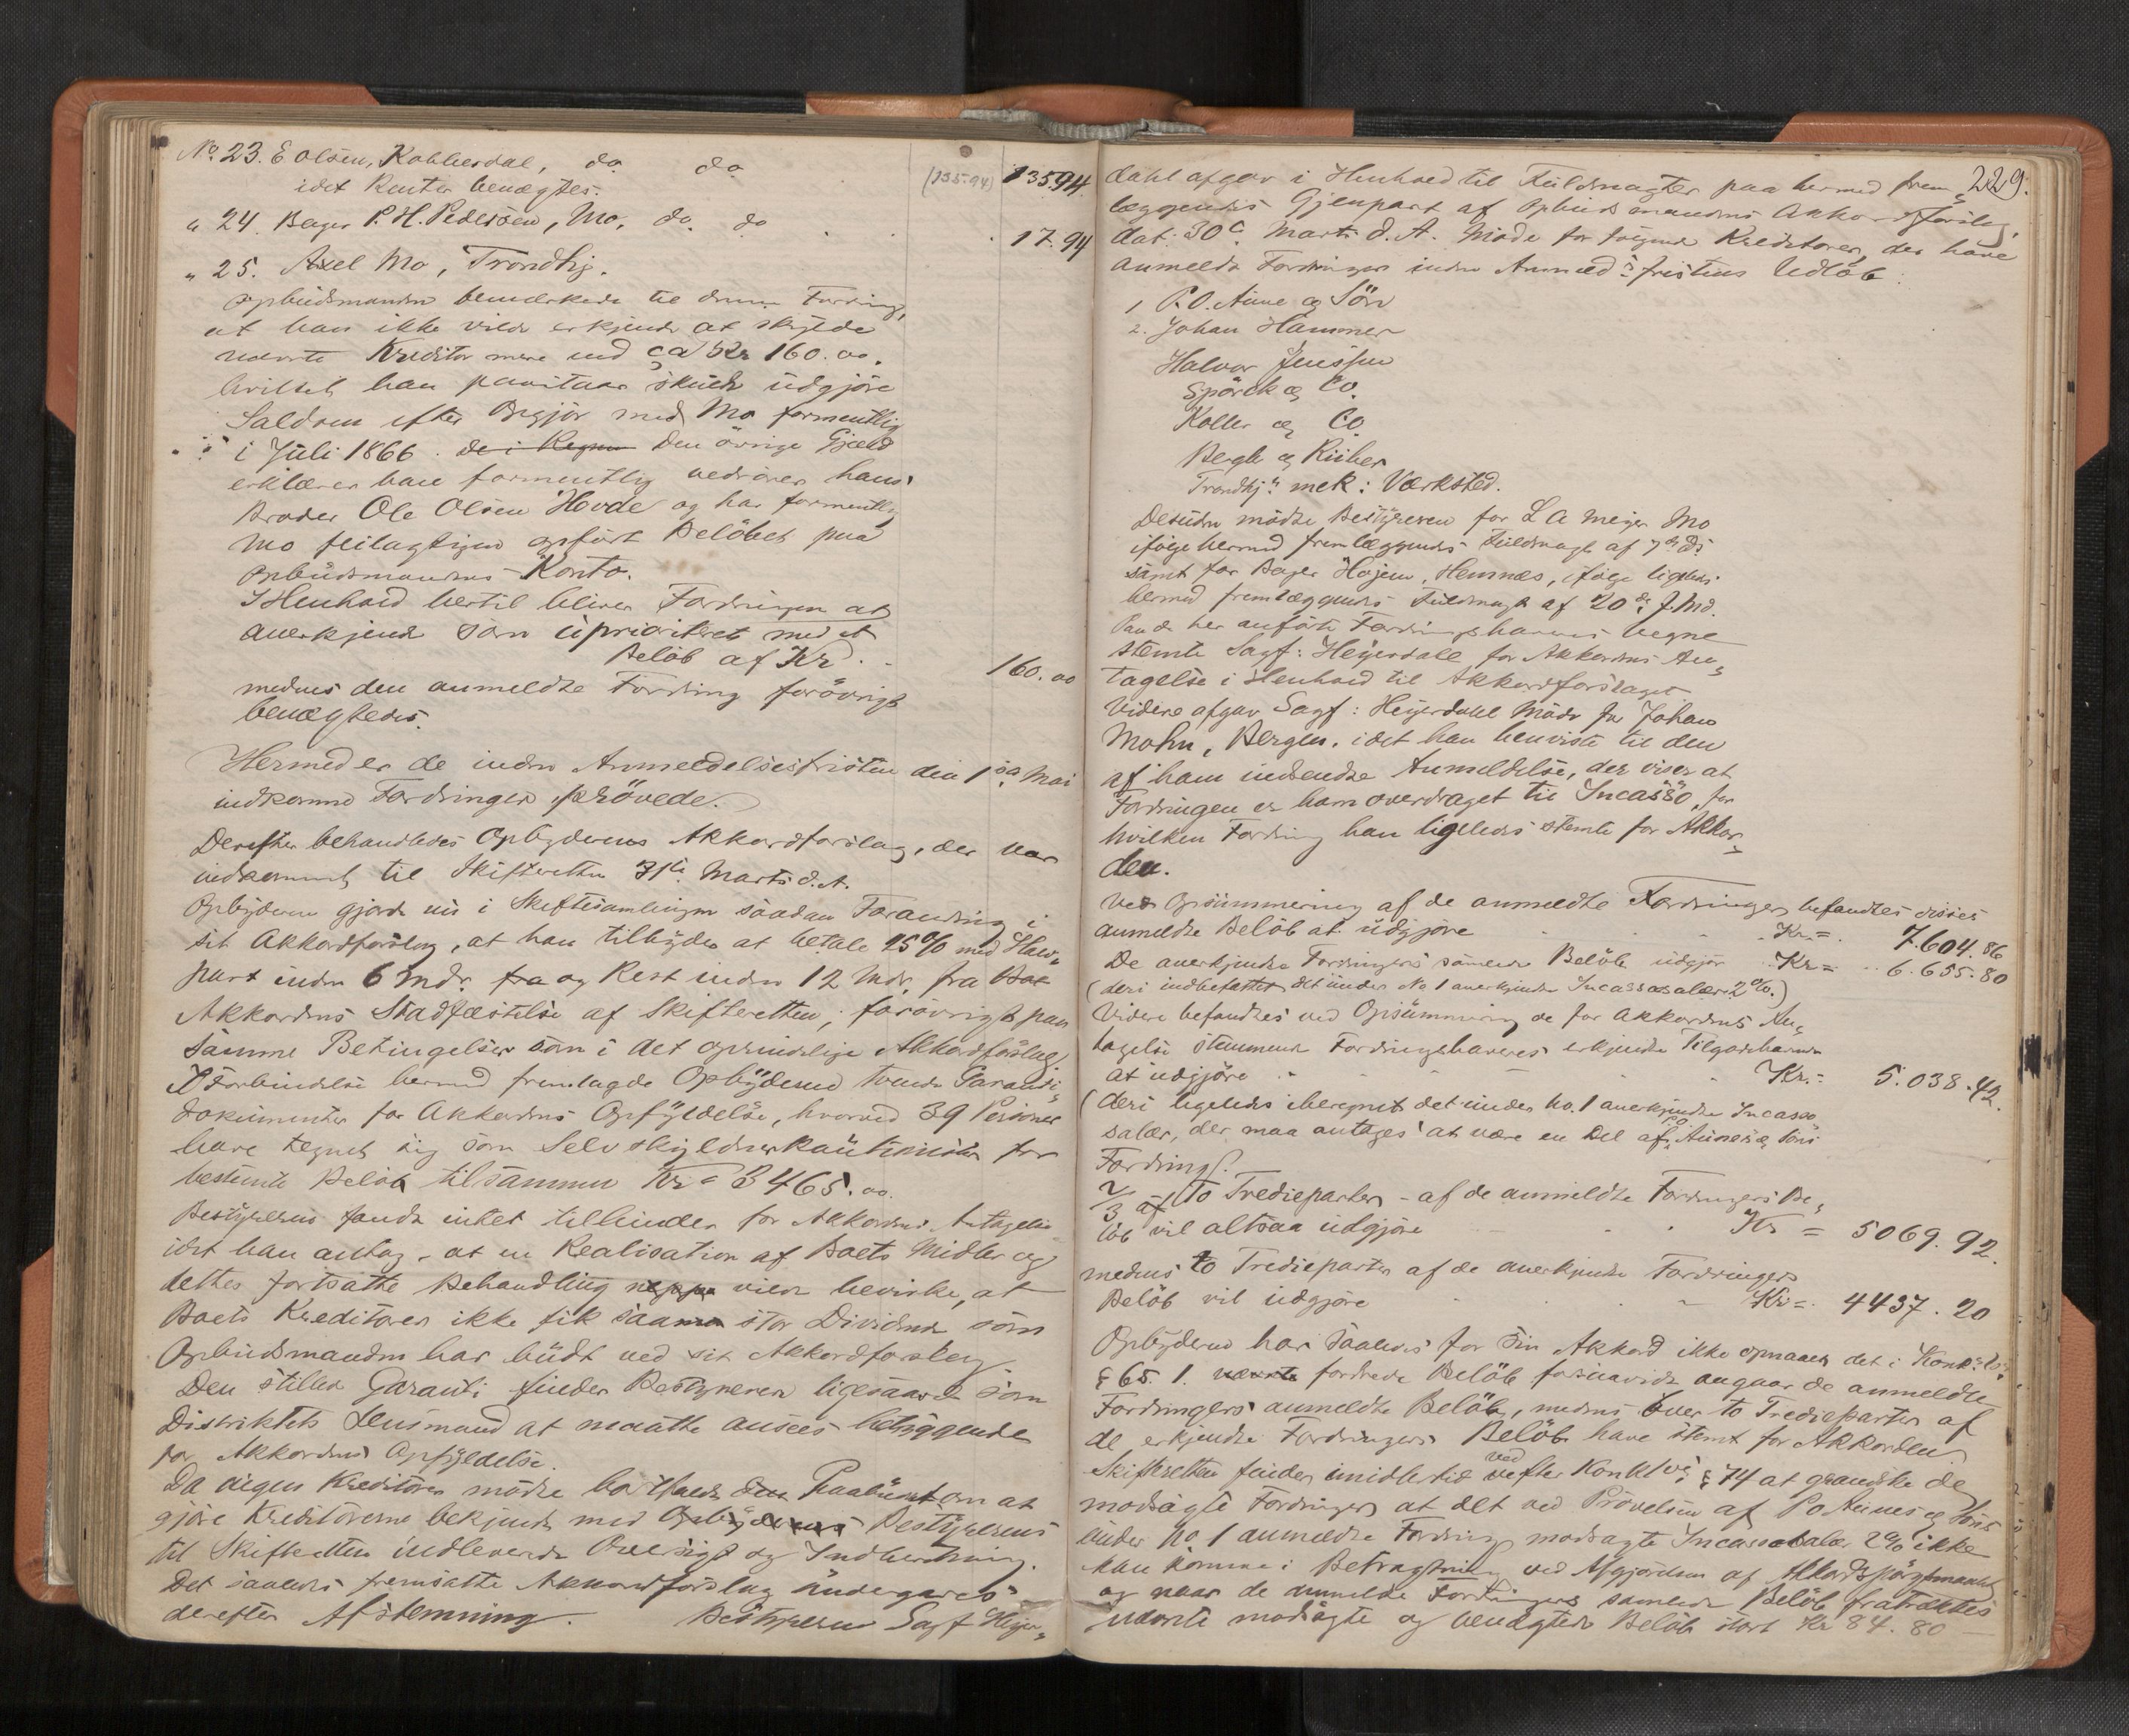 No. 23. E Olsen, Kobberdal, do do (135.94) 135.94
idet Renter benægtes.
" 24. Bager P. H. Pedersen, Mo, do. do 17.94
" 25. Axel Mo, Trondhj.
Opbudsmanden bemærkede til denne Fordring,
at han ikke vilde erkjende at skylde
nævnte Kreditor mere end ca Kr 160.00.
hvilket han paastaar skulde udgjöre
Saldoen efter Opgjör med Mo formentlig
i Juli 1866. de i Regnin Den övrige Gjæld
erklærer han formentlig vedrører hans
Broder Ole Olsen Hovde og har formentlig
Mo feilagtigen opfört Belöbet paa
Opbudsmandens Konto.
I Henhold hertil bliver Fordringen at
anerkjende som uprioriteret med et
Belöb af Kr. 160.00
medens den anmeldte Fordring forövrigt
benægtedes.
Hermed er de inden Anmeldelsesfristen den 1ste Mai
indkomne Fordringer prövede.
Derefter behandledes Opbyderens Akkordforslag, der var
indkommet til Skifteretten 31te Marts d. A.
Opbyderen gjorde nu i Skiftesamlingen saadan Forandring i
sit Akkordforslag, at han tilbyder at betale 25% med Halv-
part inden 6 Mdr. fra og Rest inden 12 Mdr. fra
Akkordens Stadfæstelse af Skifteretten, forövrigt paa
samme Betingelser som i det oprindelige Akkordforslag
I Forbindelse hermed fremlagde Opbyderen tvende Garanti-
dokumenter for Akkordens Opfyldelse, hvorved 39 Personer
have tegnet sig som Selvskyldnerkautionister for
bestemte Belöb tilsammen Kr = 3465.00.
Bestyreren fandt intet tilhinder for Akkordens Antagelse
idet han antog, at en Realisation af Boets Midler og
dettes fortsatte Behandling neppe vilde bevirke, at
Boets Kreditorer ikke fik saa stor Dividende som
Opbudsmanden har budt ved sit Akkordforslag.
Den stillede Garanti finder Bestyreren ligesaavel som
Distriktets Lensmand at maatte ansees betryggende
for Akkordens Opfyldelse.
Da ingen Kreditorer mødte bortfaldt Paabudet om at
gjöre Kreditorerne bekjendt med Bestyrerens
til Skifteretten indleverede Oversigt og Indberetning.
Det saaledes fremsatte Akkordforslag undergaves
derefter Afstemning. Bestyreren Sagf Heyer-
229.
dahl afgav i Henhold til Fuldmagter paa hermed frem-
læggendes Gjenpart af Opbudsmandens Akkordforslag,
dat. 30te Marts d. A. Møde for følgende Kreditorer, der have
anmeldt Fordringer inden Anmeld:fristens Udlöb:
1 P.O. Aune og Sön
2. Johan Hammer
Halvor Jenssen
Spörck og Co.
Koller og Co
Bergh og Riiber
Trondhj: mek: Værksted.
Desuden mødte Bestyreren for L A Meyer Mo
ifølge hermed fremlæggendes Fuldmagt af 7de Ds
samt for Bager Højem, Hemnæs, ifølge ligeledes
hermed fremlæggendes Fuldmagt af 20de f. Md.
Paa de her anførte Fordringshaveres Vegne
stemte Sagf: Heyerdahl for Akkordens An-
tagelse i Henhold til Akkordforslaget.
Videre afgav Sagf: Heyerdahl Møde for Johan
Mohn, Bergen, idet han henviste til den
af ham indsendte Anmeldelse, der viser at
Fordringen er ham overdraget til Incasso, for
hvilken Fordring han ligeledes stemte for Akkor-
den.
Ved Opsummering af de anmeldte Fordringer befandtes disses
anmeldte Belöb at udgjöre Kr = 7.604.86
De anerkjendte Fordringers samlede Belöb udgjør Kr = 6.655.80
(deri indbefattet det under No 1 anerkjendte Incassosalær 2%.)
Videre befandtes ved Opsummering de for Akkordens An-
tagelse stemmende Fordringshaveres erkjendte Tilgodehavende
at udgjöre Kr. = 5.038.42.
(deri ligeledes iberegnet det under No. 1 anerkjendte Incasso
salær, der maa antages at være en Del af P.O. Aunes & Söns
Fordring).
2/3 af - to Trediepartes - af de anmeldte Fordringers Be-
löb vil altsaa udgjöre Kr = 5069.92.
medens to Trediepartes af de anerkjendte Fordringers
Belöb vil udgjøre Kr = 4437.20
Opbyderen har saaledes for sin Akkord ikke opnaaet det i Konk:lov:
§ 65. 1. nævnte fordrede Belöb forsaavidt angaar de anmeldte
Fordringers anmeldte Belöb, medens over to Trediepartes af
de erkjendte Fordringers Belöb have stemt for Akkorden.
Skifteretten finder imidlertid ved efter Konklov: § 74 at granske de
modsagte Fordringer at det ved Prøvelsen af P.O. Aunes & Söns
under No 1 anmeldte Fordring modsagte Incassosalær 2% ikke
kan komme i Betragtning ved Afgjørelsen af Akkordspörgsmaalet
og naar de anmeldte Fordringers samlede Belöb fratrækkes
nævnte modsagte og benægtede Belöb stort Kr 84.80